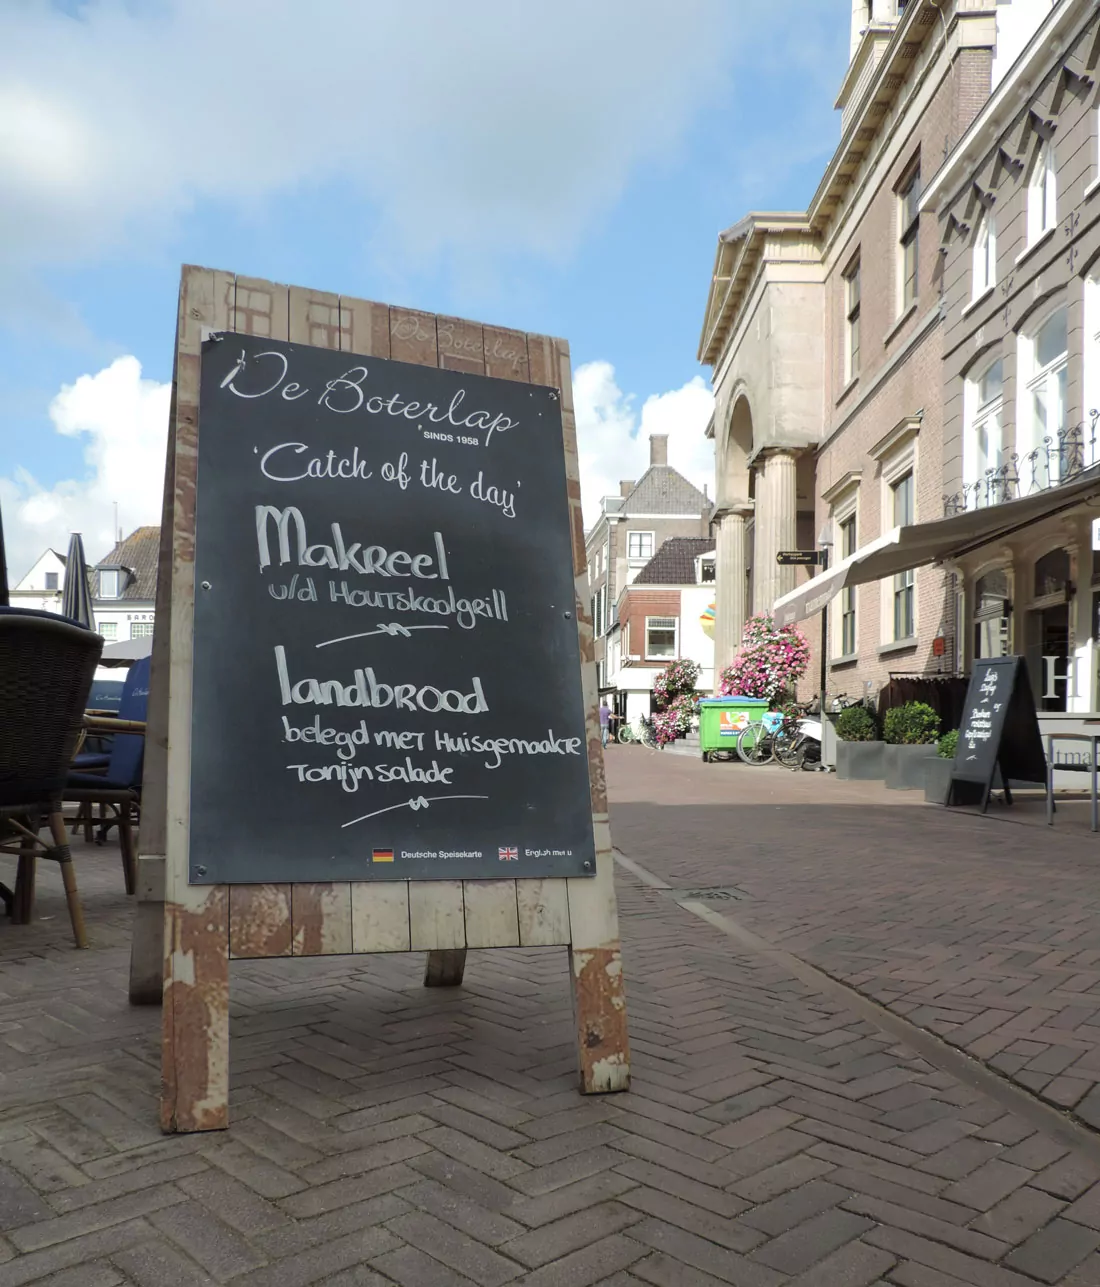 De Boterlap
De Boterlap
SINDS 1958
'Catch of the day'
Makreel
v/d Houtskoolgrill
landbrood
belegd met Huisgemaakte
Tonijnsalade
Deutsche Speisekarte
English menu
H